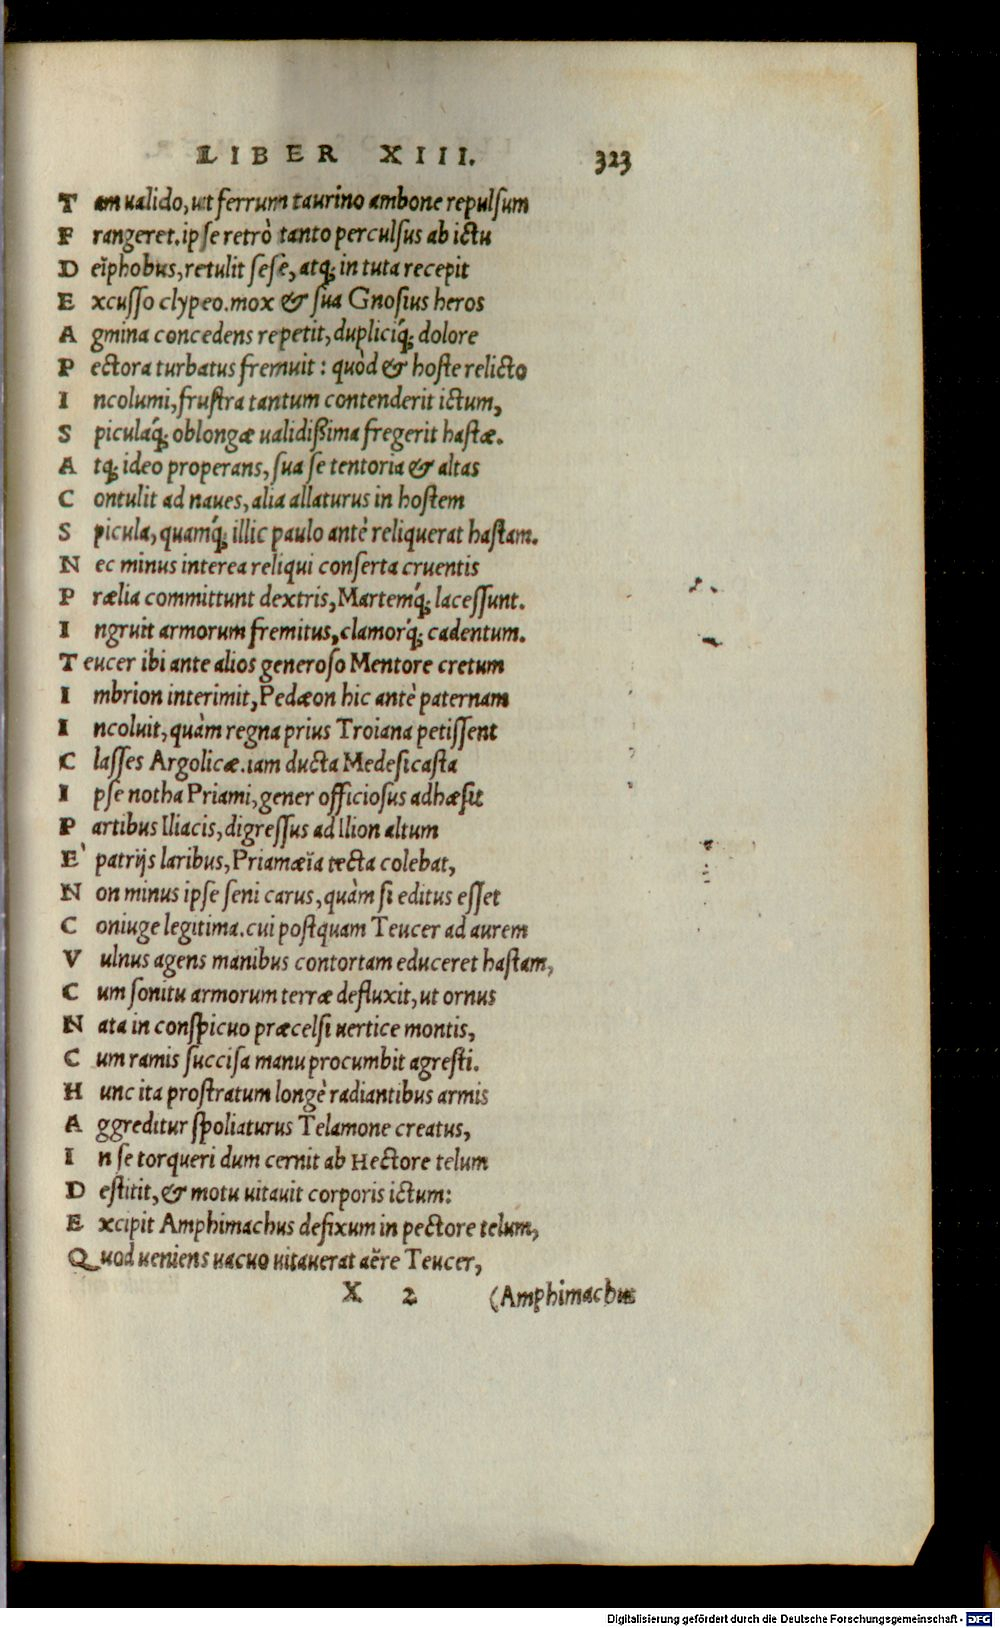 LIBER XIII. 323
Tam ualido, ut ferrum taurino ambone repulsum
Frangeret. ipse retrò tanto perculsus ab ictu
Deïphobus, retulit sese, atq; in tuta recepit
Excusso clypeo. mox & sua Gnosius heros
Agmina concedens repetit, dupliciq́; dolore
Pectora turbatus fremuit: quòd & hoste relicto
Incolumi, frustra tantum contenderit ictum,
Spiculaq́; oblongæ ualidißima fregerit hastæ.
Atq; ideo properans, sua se tentoria & altas
Contulit ad naues, alia allaturus in hostem
Spicula, quamq́; illic paulo antè reliquerat hastam.
Nec minus interea reliqui conserta cruentis
Prælia committunt dextris, Martemq́; lacessunt.
Ingruit armorum fremitus, clamorq́; cadentum.
Teucer ibi ante alios generoso Mentore cretum
Imbrion interimit, Pedæon hic antè paternam
Incoluit, quàm regna prius Troiana petissent
Classes Argolicæ. iam ducta Medesicasta
Ipse notha Priami, gener officiosus adhæsit
Partibus Iliacis, digressus ad Ilion altum
E` patrijs laribus, Priamæïa tecta colebat,
Non minus ipse seni carus, quàm si editus esset
Coniuge legitima. cui postquam Teucer ad aurem
Vulnus agens manibus contortam educeret hastam,
Cum sonitu armorum terræ defluxit, ut ornus
Nata in conspicuo præcelsi uertice montis,
Cum ramis succisa manu procumbit agresti.
Hunc ita prostratum longè radiantibus armis
Aggreditur spoliaturus Telamone creatus,
In se torqueri dum cernit ab Hectore telum
Destitit, & motu uitauit corporis ictum:
Excipit Amphimachus defixum in pectore telum,
Quod ueniens uacuo uitauerat aëre Teucer,
X 2 (Amphimachus
Digitalisierung gefördert durch die Deutsche Forschungsgemeinschaft - DFG